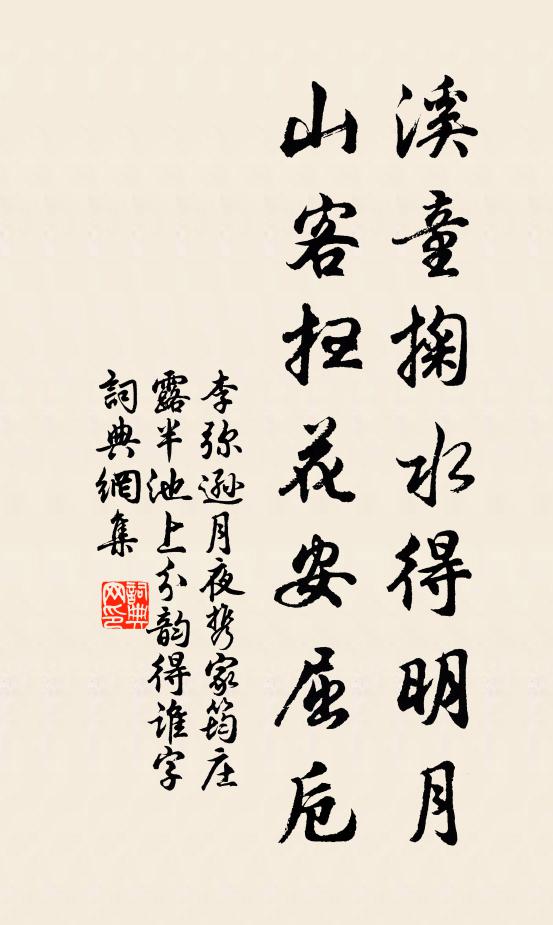 溪童掬水得明月
山客扫花安屈卮
李弥逊月夜携家筠庄
露半池上分韵得谁字
詞典網集
詞典网印